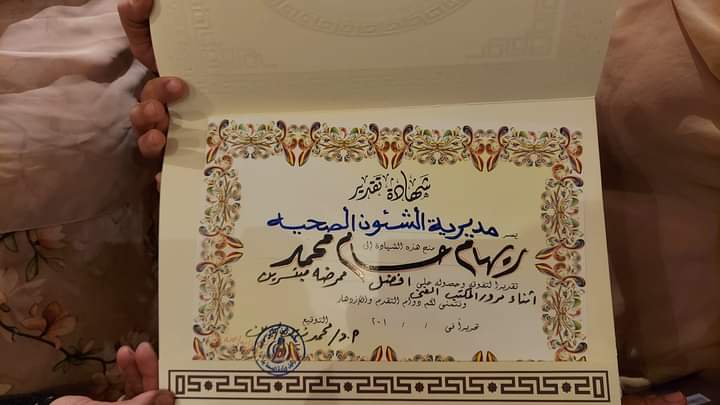 شهادة تقدير
يسر مديرية الشئون الصحية
منح هذه الشهادة إلى
ريهام حسام محمد
تقديرا لتفوقه وحصوله على افضل ممرضة
اثناء مرور المكتب الفنى
ونتمنى لكم دوام التقدم والازدهار
تحريراً فى / / ٢٠١
التوقيع
د/ محمد